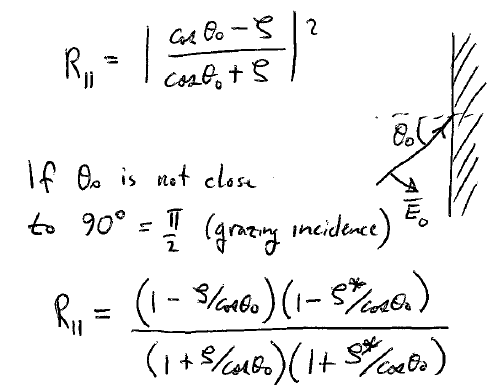 R∥ = | (cos θ₀ − ζ) / (cosθ₀ + ζ) |²
θ₀
E₀
If θ₀ is not close
to 90° = π/2 (grazing incidence)
R∥ = (1 − ζ/cosθ₀)(1 − ζ*/cosθ₀) / (1 + ζ/cosθ₀)(1 + ζ*/cosθ₀)